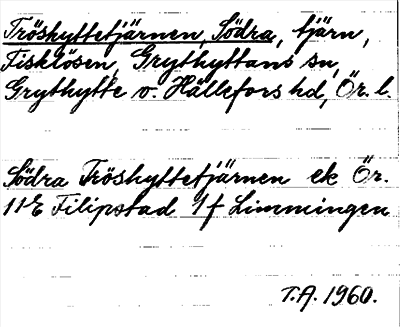 Tröshyttetjärnen, Södra, tjärn,
Fisklösen, Grythyttans sn,
Grythytte o. Hällefors hd, Ör. l.
Södra Tröshyttetjärnen ek Ör.
11 E Filipstad 1 f Limmingen
T.A. 1960.